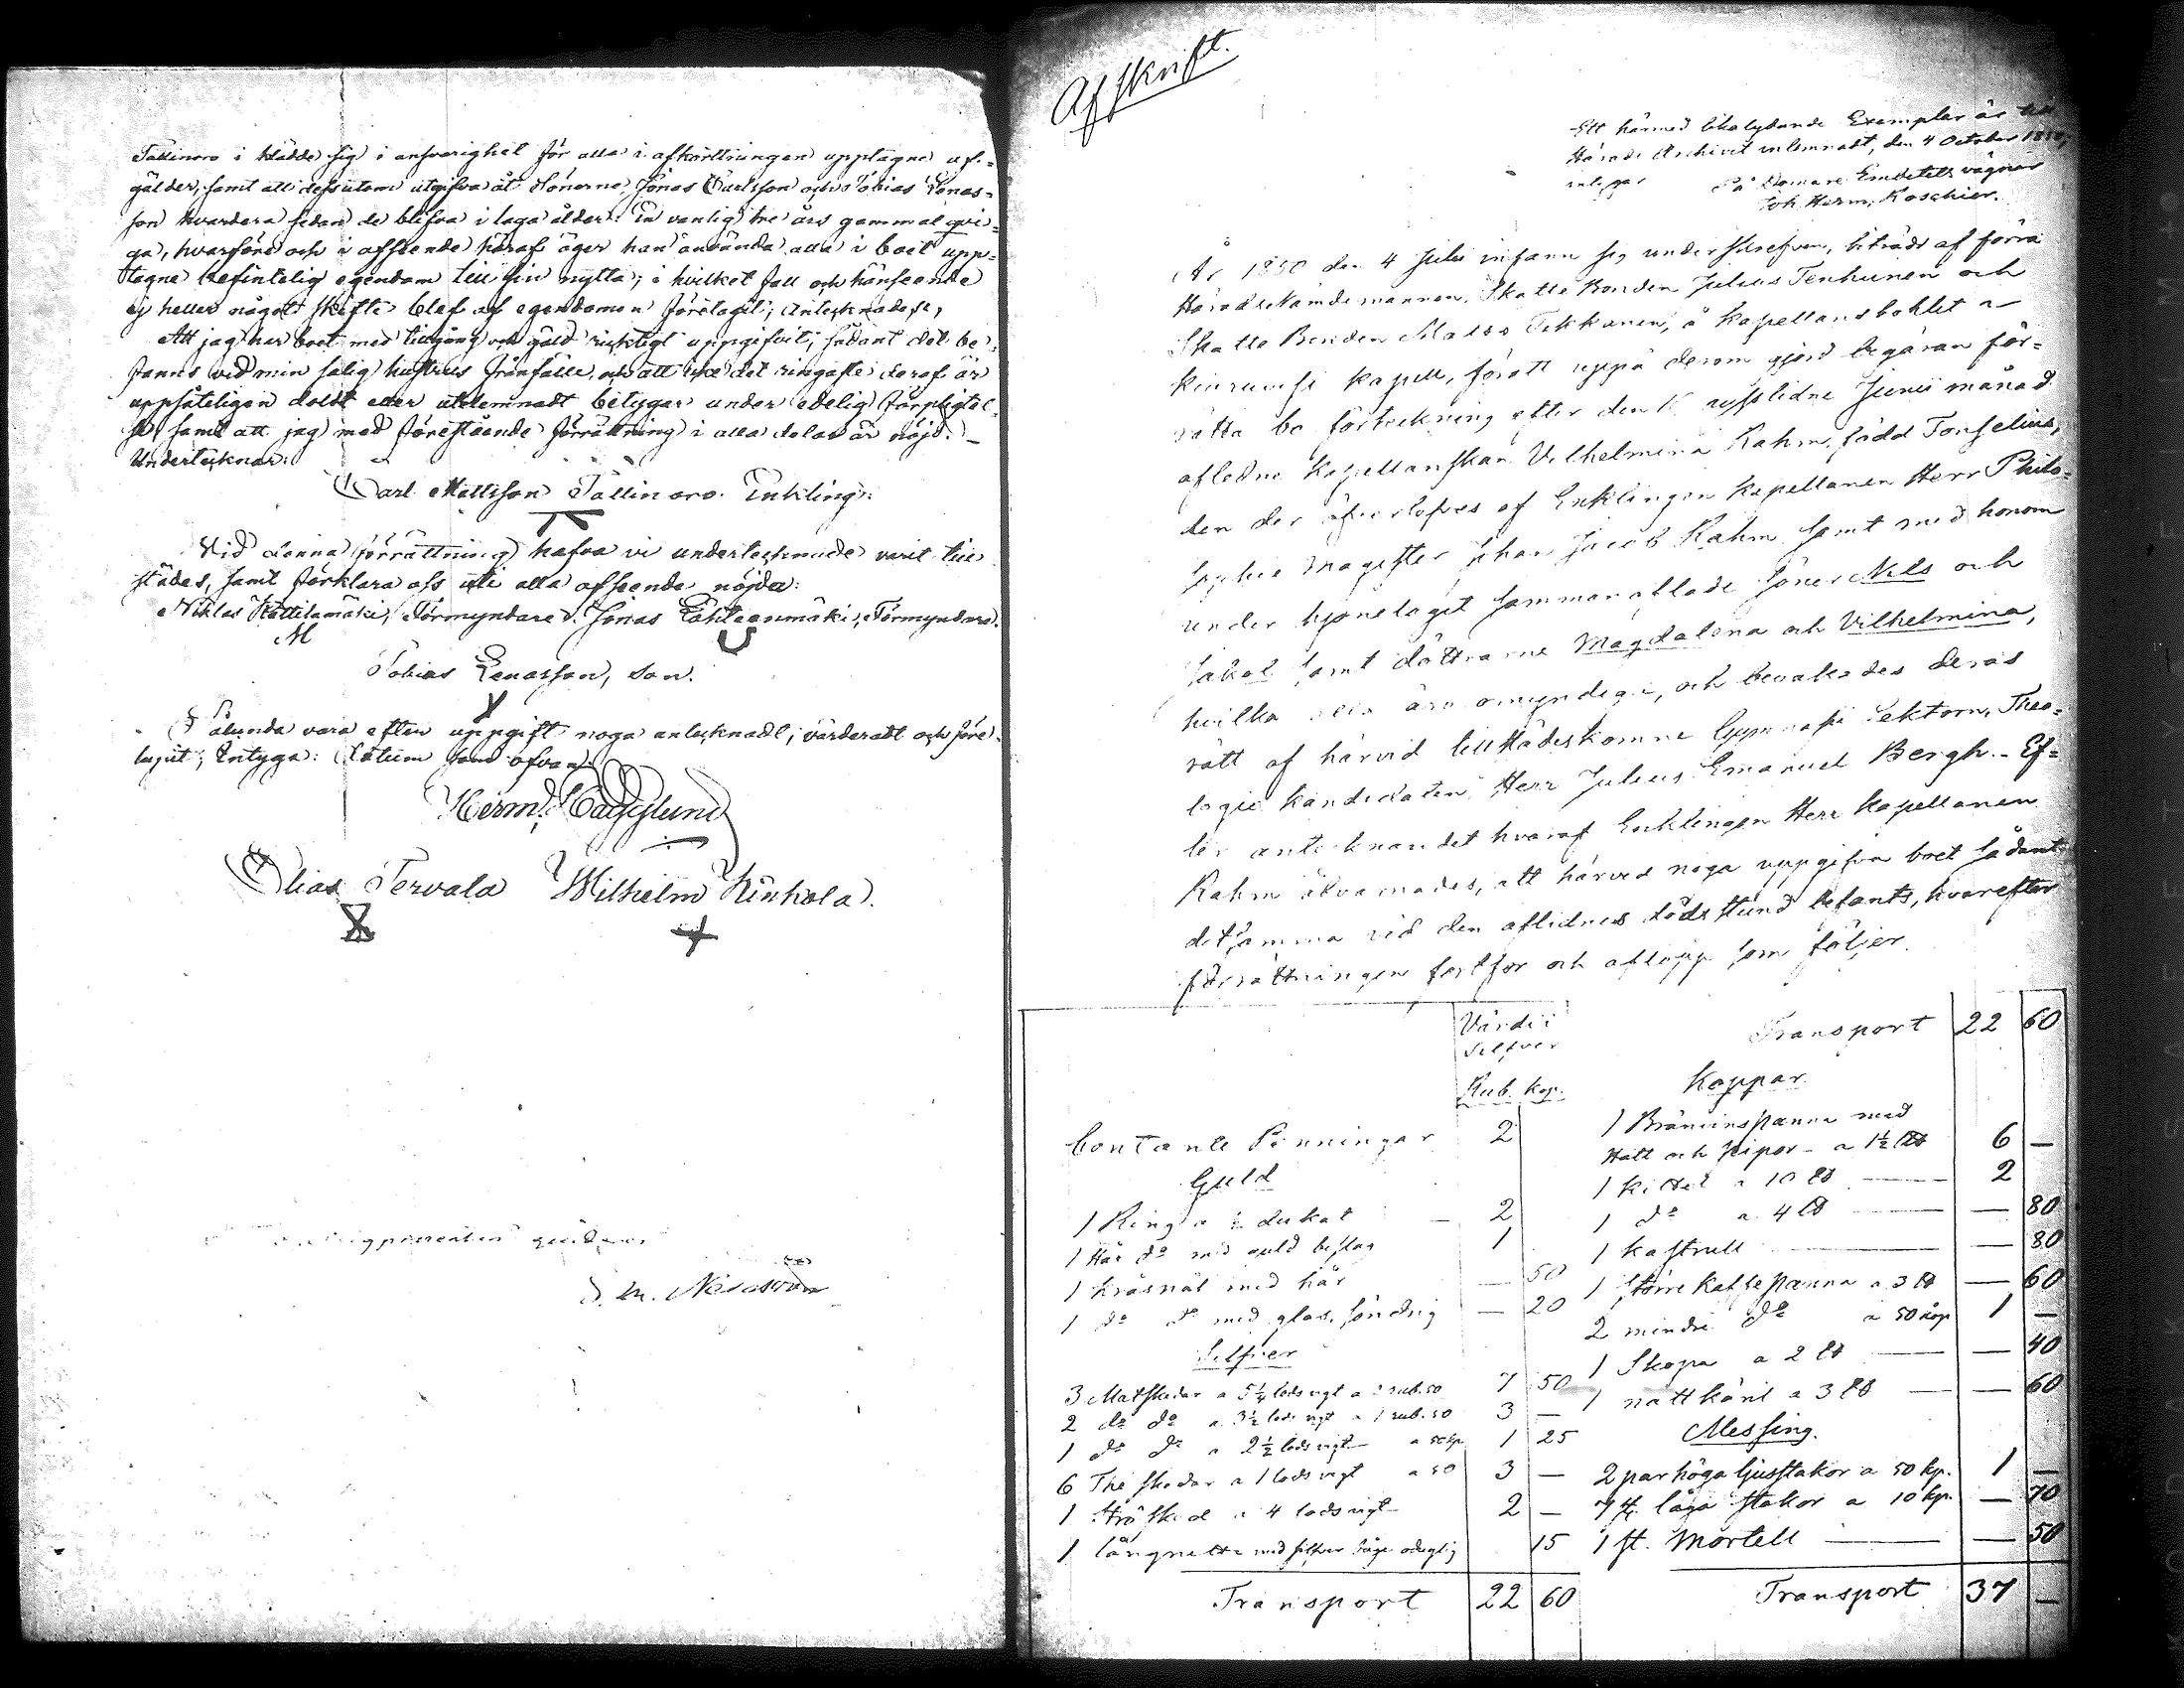 Tallinoro i klädde sig i ansvarighet för alla i afkorttningen upptagne ut-
gälder, samt att dessutom utgifva åt Sönerne Jonas Carlsson och Tobias Lenas-
son hvardera sedan de blifva i laga ålder: En vanlig tre års gammal qvi-
ga, hvarföre och i afseende häraf äger han använda alla i boet upp-
tagne befintelig egendom till sin nytta; i hvilket fall och hänseende
ej heller något skifte blef af egendomen företagit; Antecknades,
Att jag har boet med tillgång och gäld riktigt uppgifvit; sådant det be-
fanns vid min salig hustrus frånfälle, och att icke det ringaste deraf är
uppsåteligen doldt eller utelemnadt betygar under edelig förpligtel-
se, samt att jag med förestående förrättning i alla delar är nöjd. —
Undertecknar:
Carl Mattsson Tallinoro. Enkling.
Vid denna förrättning hafva vi undertecknade varit till
städes, samt förklara oss uti alla afseende nöjda:
Niklas Kattilamäki, Förmyndare. Jonas Lahteenmäki, Förmyndare.
M
Tobias Lenasson, son.
Sålunda vara efter uppgift noga antecknadt, värderadt och före-
lupit; Intyga: Datum som ofvan.
Herm: Hägglund
Elias Tervala Wilhelm Kinhola.
Afskrift.
Ett härmed lika lydande Exemplar är till
Härads Archivet inlemnadt, den 4 October 1850,
intygar På Domare Embetets vägnar
Joh. Herm. Roschier.
År 1850 den 4 Julii infann sig underskrefven, biträdd af förra
HäradsNämdemannen, Skatte Bonden Julius Tenhunen och
Skatte Bonden Matts Tikkanen, å kapellansbohlet
Kiuruvesi kapell, för att uppå derom gjord begäran för-
rätta bo förteckning efter den sisstlidne Junii månad
aflidne kapellanskan Vilhelmina Rahm, född Tonselius,
den der efverlefves af Enklingen kapellanen Herr Philo-
sophie Magister Johan Jacob Rahm samt med honom
under hjonelaget sammanaflade söner Nils och
Jakob samt döttrarne Magdalena och Vilhelmina,
hvilka alla äro omyndiga, och bevakades deras
rätt af härvid tillstädeskomne Gymnasii Lektorn, Theo-
logie kandidaten Herr Julius Emanuel Bergh. - Ef-
ter antecknandet hvaraf Enklingen Herr kapellanen
Rahm åtvarnades, att härvid noga uppgifva boet sådant
detsamma vid den aflidnes dödsstund befants, hvarefter
förrättningen fortfor och aflopp som följer.
Värde i
Silfver
Rub. kop.
Contante Penningar 2
Guld
1 Ring a ½ dukat — 2
1 Hår do med guld beslag 1
1 kråsnål med hår — 50
1 do do med glas, söndrig — 20
Silfver
3 Matskedar a 5¼ lods vigt a 2 rub. 50 7 50
2 do do a 3½ lods vigt a 1 rub. 50 3 —
1 do do a 2½ lods vigt a 50 kp 1 25
6 The skedar a 1 lods vigt a 50 3 —
1 Strösked a 4 lods vigt 2 —
1 långnette med silfver 15
Transport 22 60
Transport 22 60
Koppar
1 Bränvinspanna med
Hatt och pipor - a 1½ L℔ 6 —
1 kittel a 10 ℔ — 2
1 do a 4 ℔ — — 80
1 kastrull — — 80
1 större kaffepanna a 3 ℔ — 60
2 mindre do a 50 kop 1 —
1 Skopa a 2 ℔ — — 40
1 nattkäril a 3 ℔ — — 60
Messing.
2 par höga ljusstakor a 50 kp. 1 —
7 st. låga stakor a 10 kp. — 70
1 st. Mortell — — 50
Transport 37 —